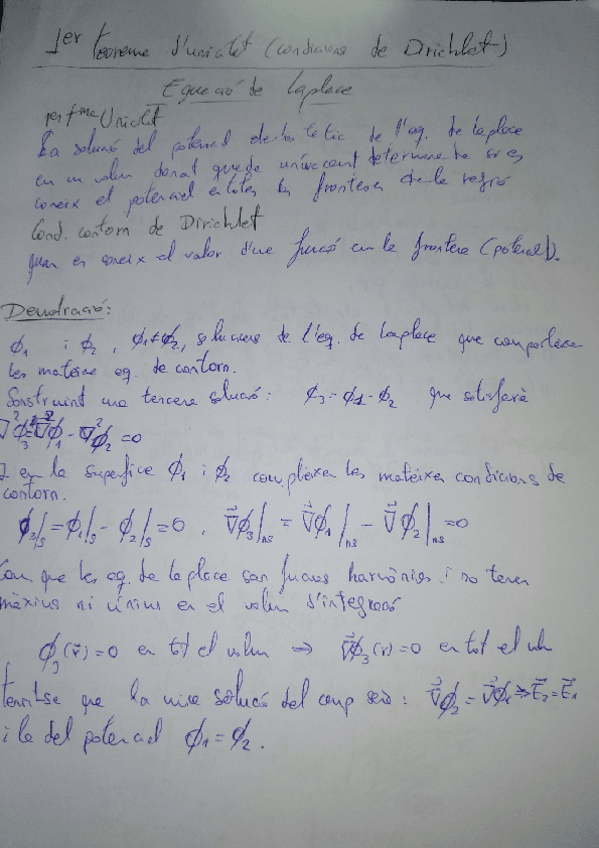 1er teorema d'unicitat (condicions de Dirichlet)
Equació de Laplace
1er tma Unicitat
La solució del potencial electrostàtic de l'eq. de Laplace
en un volum donat queda unívocament determinada si es
coneix el potencial a totes les fronteres de la regió
Cond. contorn de Dirichlet
quan es coneix el valor d'una funció en la frontera (potencial).
Demostració:
ϕ₁ i ϕ₂, ϕ₁≠ϕ₂, solucions de l'eq. de Laplace que comparteixen
les mateixes eq. de contorn.
Construint una tercera solució: ϕ₃=ϕ₁-ϕ₂ que satisfarà
∇²ϕ₃=∇²ϕ₁-∇²ϕ₂=0
I en la superfície ϕ₁ i ϕ₂ compleixen les mateixes condicions de
contorn.
ϕ₃|s=ϕ₁|s-ϕ₂|s=0, ∇⃗ϕ₃|ns=∇⃗ϕ₁|ns-∇⃗ϕ₂|ns=0
Com que les eq. de Laplace son funcions harmòniques i no tenen
màxims ni mínims en el volum d'integració
ϕ₃(r⃗)=0 en tot el volum ⇒ ∇⃗ϕ₃(r)=0 en tot el
que la única solució del camp serà: ∇⃗ϕ₂=∇⃗ϕ₁⇒E⃗₂=E⃗₁
i la del potencial ϕ₁=ϕ₂.